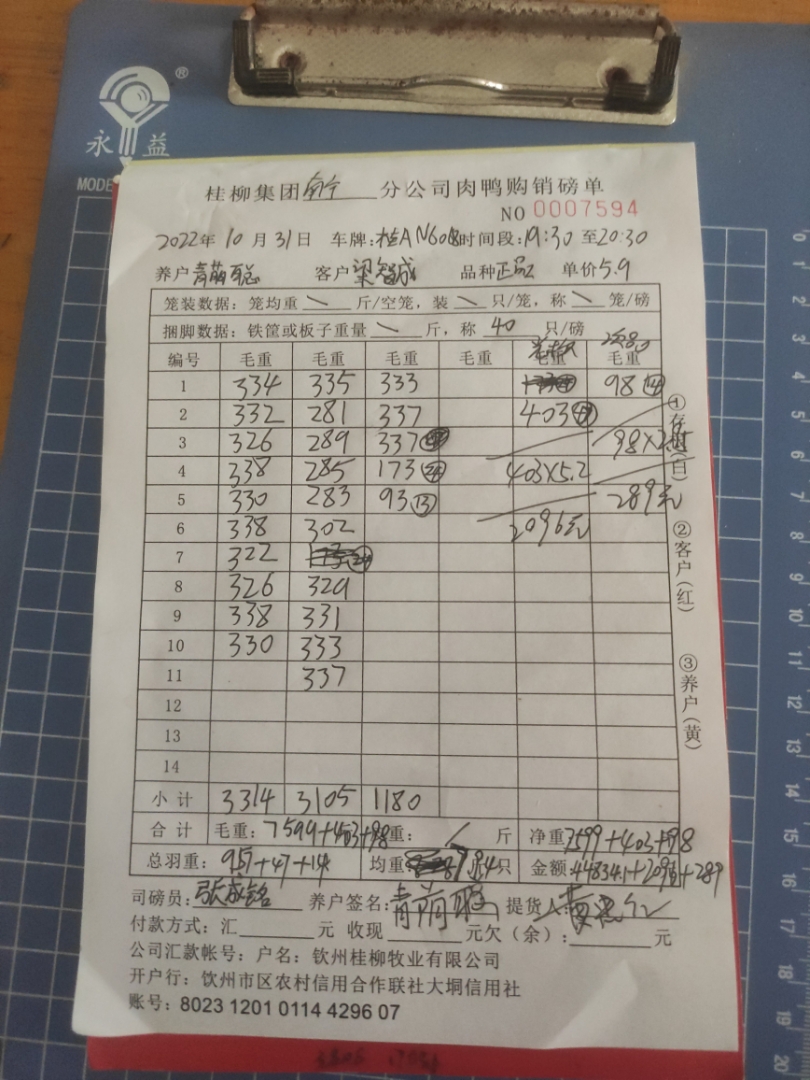 永益 ®
MODE
桂柳集团南宁分公司肉鸭购销磅单
NO 0007594
2022年10月31日 车牌:桂AN60 时间段:19:30至20:30
养户 客户梁智成 品种正品 单价5.9
笼装数据: 笼均重\斤/空笼, 装\只/笼, 称\笼/磅
捆脚数据: 铁筐或板子重量\斤, 称40只/磅
编号 毛重 毛重 毛重 毛重 毛重 毛重
1 334 335 333 98 14
2 332 281 337 403 47
3 326 289 337 98×
4 338 285 173 24 403×5.2
5 330 283 93 13 289元
6 338 302 2096元
7 322
8 326 329
9 338 331
10 330 333
11 337
12
13
14
小计 3314 3105 1180
合计 毛重:7599+403+98 重: 斤 净重7599+403+98
总羽重: 957+47+14 均重 7.94只 金额:44834.1+2096+289
司磅员: 张成铭 养户签名: 提货人
付款方式: 汇 元 收现 元欠(余): 元
公司汇款帐号: 户名: 钦州桂柳牧业有限公司
开户行: 钦州市区农村信用合作联社大垌信用社
账号: 8023 1201 0114 4296 07
①存根(白)
②客户(红)
③养户(黄)
0
1
2
3
4
5
6
7
8
9
10
11
12
13
14
15
16
17
18
19
20